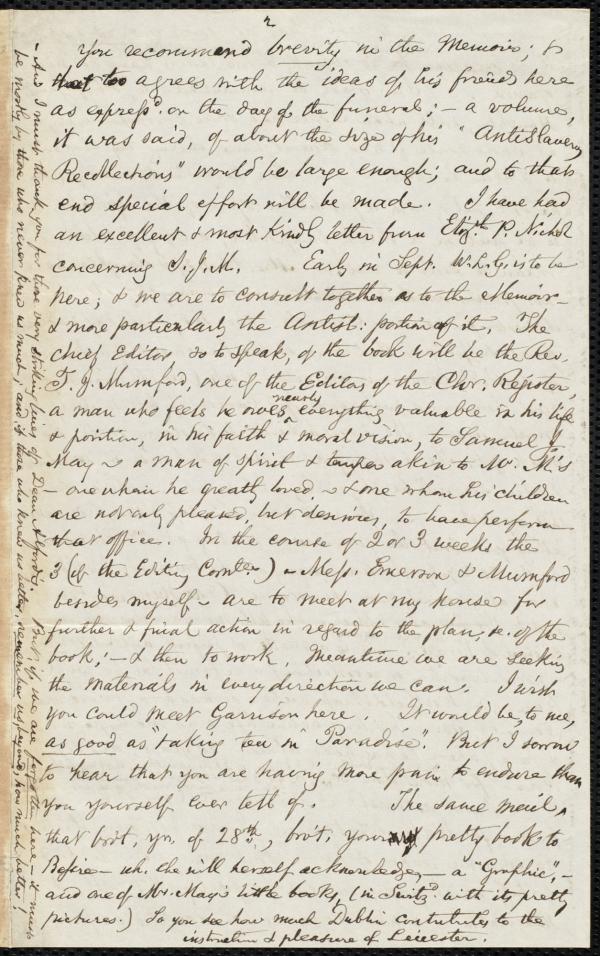 2
You recommend brevity in the Memoir; &
that too agrees with the ideas of his friends here
as express'd. on the day of the funeral; – a volume,
it was said, of about the size of his "AntiSlavery
Recollections" would be large enough; and to that
end special effort will be made. I have had
an excellent & most kindly letter from Eliz.th P. Nichol
concerning S.J.M. Early in Sept. W.L.G. is to be
here; & we are to consult together as to the Memoir –
& more particularly the AntiSl: portion of it. The
chief Editor, so to speak, of the book will be the Rev.
T. J. Mumford, one of the Editors of the Chr. Register,
a man who feels he owes nearly everything valuable in his life
& position, in his faith & moral vision, to Samuel J.
May – a man of spirit & temper akin to Mr. M's
– one whom he greatly loved, – & one whom his children
are not only pleased, but desirous, to have perform
that office. In the course of 2 or 3 weeks the
3 (of the Editing Comtee.) – Mess. Emerson & Mumford
besides myself – are to meet at my house for
further & final action in regard to the plan, &c. of the
book; – & then to work. Meantime we are seeking
the materials in every direction we can. I wish
you could meet Garrison here. It would be, to me,
as good as "taking tea in Paradise". But I sorrow
to hear that you are having more pain to endure than
you yourself ever tell of. The same mail,
that brot. yrs. of 28th., brot. your pretty book to
– wh. she will herself acknowledge, – a "Graphic", –
and one of Mr. May's little books, (in with its pretty
pictures.) So you see how much Dublin contributes to the
instruction & pleasure of Leicester.
– And I must thank you for those very striking lines of Dean Alford's. But if we are forgotten here – it must
be mostly by those who never knew us much; and if those who knew us better, remember us beyond, how much better!